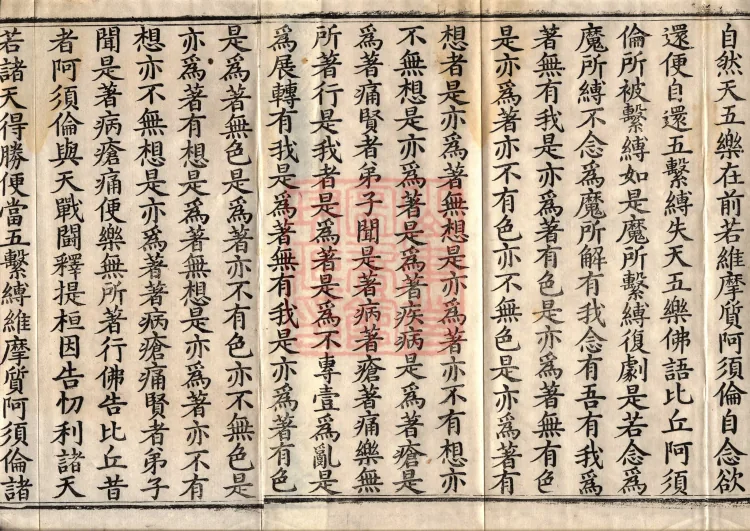 自然天五樂在前若維摩質阿須倫自念欲
還便自還五繫縛失天五樂佛語比丘阿須
倫所被繫縛如是魔所繫縛復劇是若念爲
魔所縛不念爲魔所解有我念有吾有我爲
著無有我是亦爲著有色是亦爲著無有色
是亦爲著亦不有色亦不無色是亦爲著有
想者是亦爲著無想是亦爲著亦不有想亦
不無想是亦爲著是爲著疾病是爲著瘡是
爲著痛賢者弟子聞是著病著瘡著痛樂無
所著行是我者是爲著是爲不專壹爲亂是
爲展轉有我是爲著無有我是亦爲著有色
是爲著無色是爲著亦不有色亦不無色是
亦爲著有想是爲著無想是亦爲著亦不有
想亦不無想是亦爲著著病瘡痛賢者弟子
聞是著病瘡痛便樂無所著行佛告比丘昔
者阿須倫與天戰鬪釋提桓因告忉利諸天
若諸天得勝便當五繫縛維摩質阿須倫諸